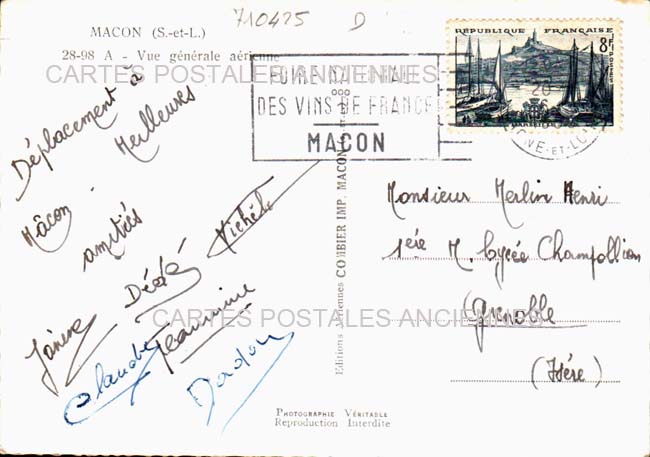 710425 D
MACON (S.-et-L.)
28-98 A - Vue générale aérienne
CARTES POSTALES ANCIENNES
RÉPUBLIQUE FRANÇAISE
8F
FOIRE NATIONALE
DES VINS DE FRANCE
MACON
Déplacement à
Mâcon.
Meilleures
amitiés
Michèle
Dédé
Jeannine
Claude
Monsieur Merlin Henri
1ère M. Lycée Champollion
Grenoble
(Isère)
Editions Aériennes COMBIER IMP. MACON
CARTES POSTALES ANCIENNES
PHOTOGRAPHIE VÉRITABLE
Reproduction Interdite